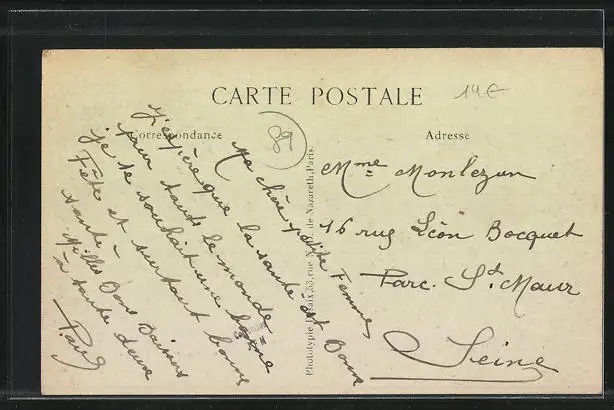 CARTE POSTALE
14€
Correspondance
89
Adresse
Ma chère petite Femme,
J'espère que la santé est Bonne
pour tout le monde
je te souhait une bonne
Fête et surtout bonne
santé.
Milles Bons Baisers
à toute deux
Paul
Phototypie Desaix, 33, rue N.-D. de Nazareth, Paris.
Mme Monlezun
16 rue Léon Bocquet
Parc. St. Maur
Seine